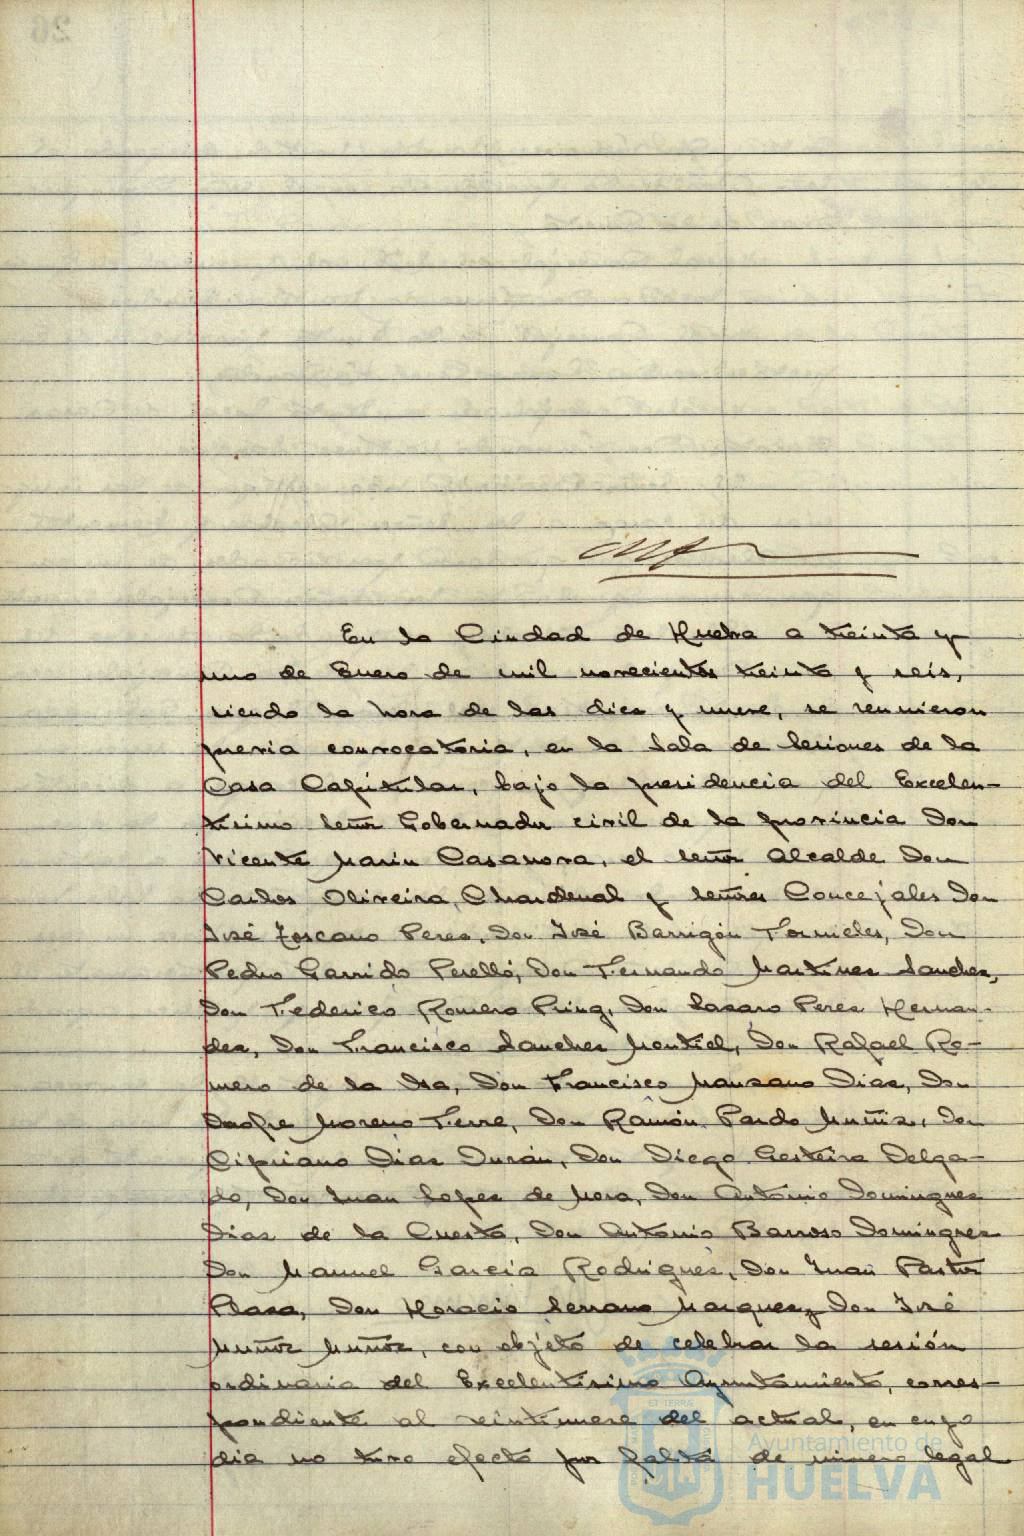 En la Ciudad de Huelva a treinta y
uno de Enero de mil novecientos treinta y seis,
siendo la hora de las diez y nueve, se reunieron
previa convocatoria, en la Sala de Sesiones de la
Casa Capitular, bajo la presidencia del Excelen-
tisimo señor Gobernador civil de la provincia Don
Vicente Marin Casanova, el señor Alcalde Don
Carlos Oliveira Chardenal y señores Concejales Don
José Toscano Perez, Don José Barrigón Fornieles, Don
Pedro Garrido Perelló, Don Fernando Martinez Sanchez,
Don Federico Romero Pring, Don Lazaro Perez Hernan-
dez, Don Francisco Sanchez Montiel, Don Rafael Ro-
mero de la Isa, Don Francisco Manzano Diaz, Don
Onofre Moreno Ferre, Don Ramón Pardo Muñiz, Don
Cipriano Diaz Durán, Don Diego Gesteira Delga-
do, Don Juan Lopez de Mora, Don Antonio Dominguez
Diaz de la Cuesta, Don Antonio Barroso Dominguez
Don Manuel Garcia Rodriguez, Don Juan Pastor
Plaza, Don Horacio Serrano Marquez, Don José
Muñoz Muñoz, con objeto de celebrar la sesión
ordinaria del Excelentisimo Ayuntamiento, corres-
pondiente al veintinueve del actual, en cuyo
dia no tuvo efecto por falta de número legal
Ayuntamiento de
HUELVA